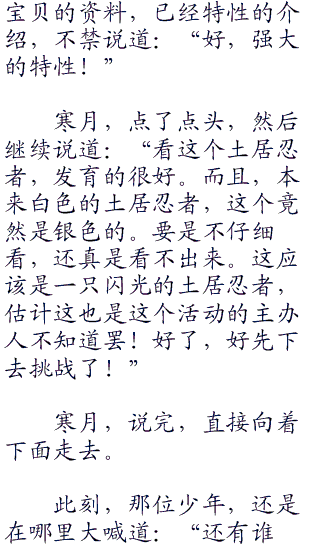 宝贝的资料，已经特性的介
绍，不禁说道：“好，强大
的特性！”
寒月，点了点头，然后
继续说道：“看这个土居忍
者，发育的很好。而且，本
来白色的土居忍者，这个竟
然是银色的。要是不仔细
看，还真是看不出来。这应
该是一只闪光的土居忍者，
估计这也是这个活动的主办
人不知道罢！好了，好先下
去挑战了！”
寒月，说完，直接向着
下面走去。
此刻，那位少年，还是
在哪里大喊道：“还有谁